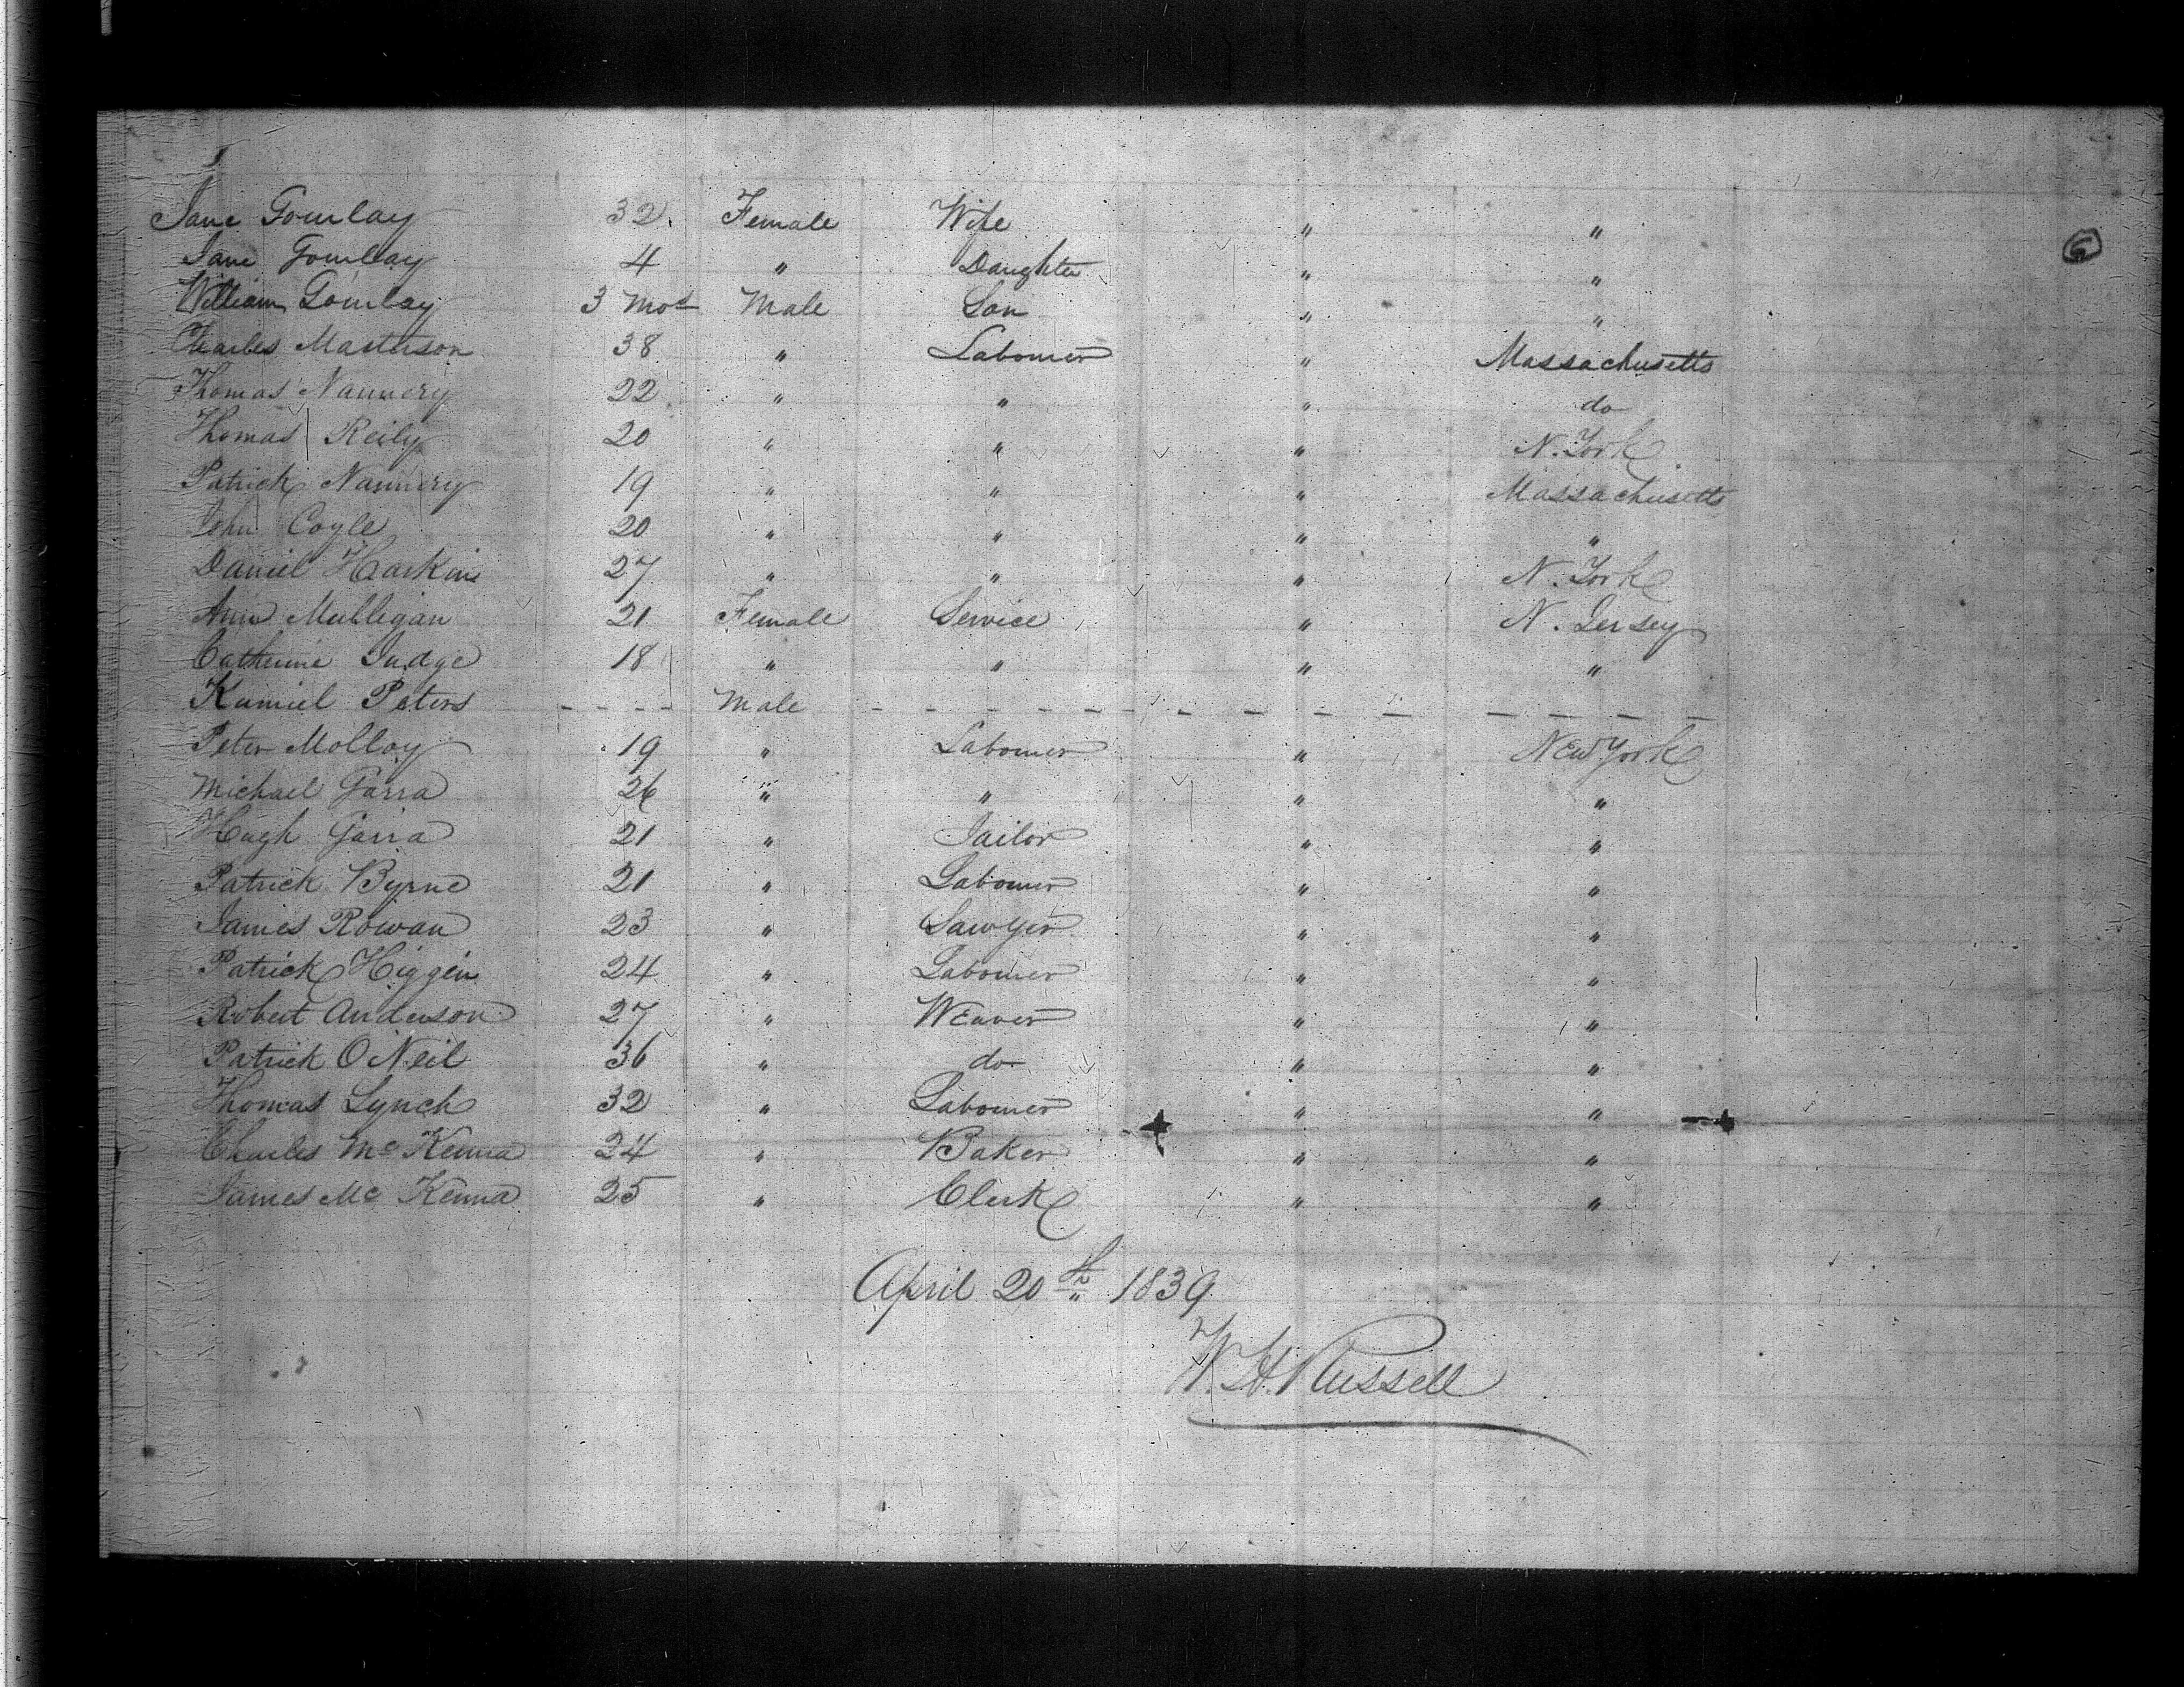 Jane Gourlay 32 Female Wife " "
5
Jane Gourlay 4 " Daughter " "
William Gourlay 3 Mos Male Son " "
Charles Masterson 38 " Labourer " Massachusetts
Thomas Nannery 22 " " " do
Thomas Reily 20 " " " N. York
Patrick Nannery 19 " " " Massachusetts
John Coyle 20 " " " "
Daniel Harkins 27 " " " N. York
Ann Mulligan 21 Female Service " N. Jersey
Catherine Judge 18 " " " "
Peters - - - - Male - - - - - - - - - - - - - - - -
Peter Molloy 19 " Labourer " New York
Michael Garra 26 " " " "
Hugh Garra 21 " Tailor " "
Patrick Byrne 21 " Labourer " "
James Rowan 23 " Sawyer " "
Patrick Higgin 24 " Labourer " "
Robert Anderson 27 " Weaver " "
Patrick O Neil 36 " do " "
Thomas Lynch 32 " Labourer " "
Charles Mc Kenna 24 " Baker " "
James Mc Kenna 25 " Clerk " "
April 20th 1839
W. H. Russell